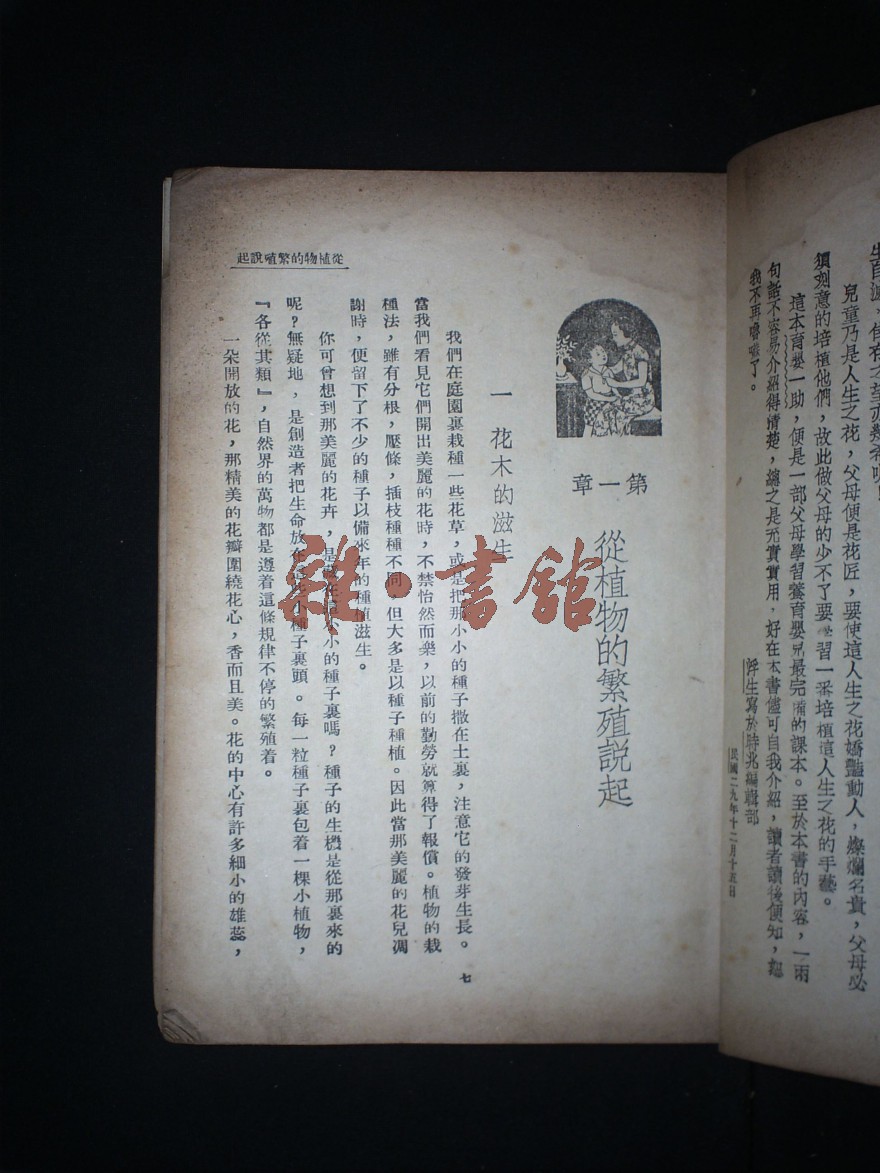 兒童乃是人生之花，父母便是花匠，要使這人生之花嬌豔動人，燦爛名貴，父母必
須刻意的培植他們，故此做父母的少不了要學習一番培植這人生之花的手藝。
這本育嬰一助，便是一部父母學習養育嬰兒最完備的課本。至於本書的內容，一兩
句話不容易介紹得清楚，總之是充實實用，好在本書儘可自我介紹，讀者讀後便知，
我不再嚕囌了。
生寫於時兆編輯部
民國二九年十二月十五日
第一章
從植物的繁殖說起
一 花木的滋生
我們在庭園裏栽種一些花草，或是把那小小的種子撒在土裏，注意它的發芽生長。
當我們看見它們開出美麗的花時，不禁怡然而樂，以前的勤勞就算得了報償。植物的栽
種法，雖有分根，壓條，插枝種種不同，但大多是以種子種植。因此當那美麗的花兒凋
謝時，便留下了不少的種子以備來年的種植滋生。
你可曾想到那美麗的花卉，是小小的種子裏嗎？種子的生機是從那裏來的
呢？無疑地，是創造者把生命放在這些小種子裏頭。每一粒種子裏包着一棵小植物，
『各從其類』，自然界的萬物都是遵着這條規律不停的繁殖着。
一朵開放的花，那精美的花瓣圍繞花心，香而且美。花的中心有許多細小的雄蕊，
從植物的繁殖說起
七
雜·書館